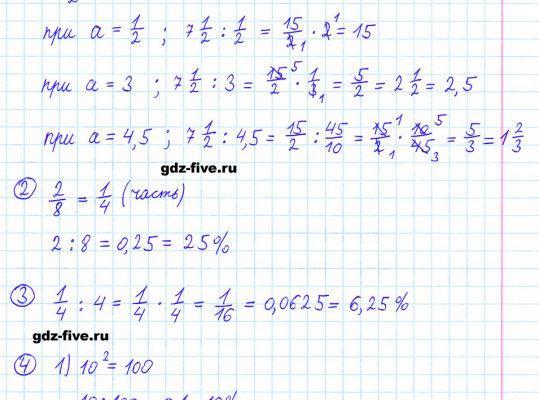 при a = 1/2 ; 7 1/2 : 1/2 = 15/2 1 · 2 1 = 15
при a = 3 ; 7 1/2 : 3 = 15 5/2 · 1/3 1 = 5/2 = 2 1/2 = 2,5
при a = 4,5 ; 7 1/2 : 4,5 = 15/2 : 45/10 = 15 1/2 1 · 10 5/45 3 = 5/3 = 1 2/3
gdz-five.ru
② 2/8 = 1/4 (часть)
2 : 8 = 0,25 = 25%
③ 1/4 : 4 = 1/4 · 1/4 = 1/16 = 0,0625 = 6,25%
gdz-five.ru
④ 1) 10² = 100